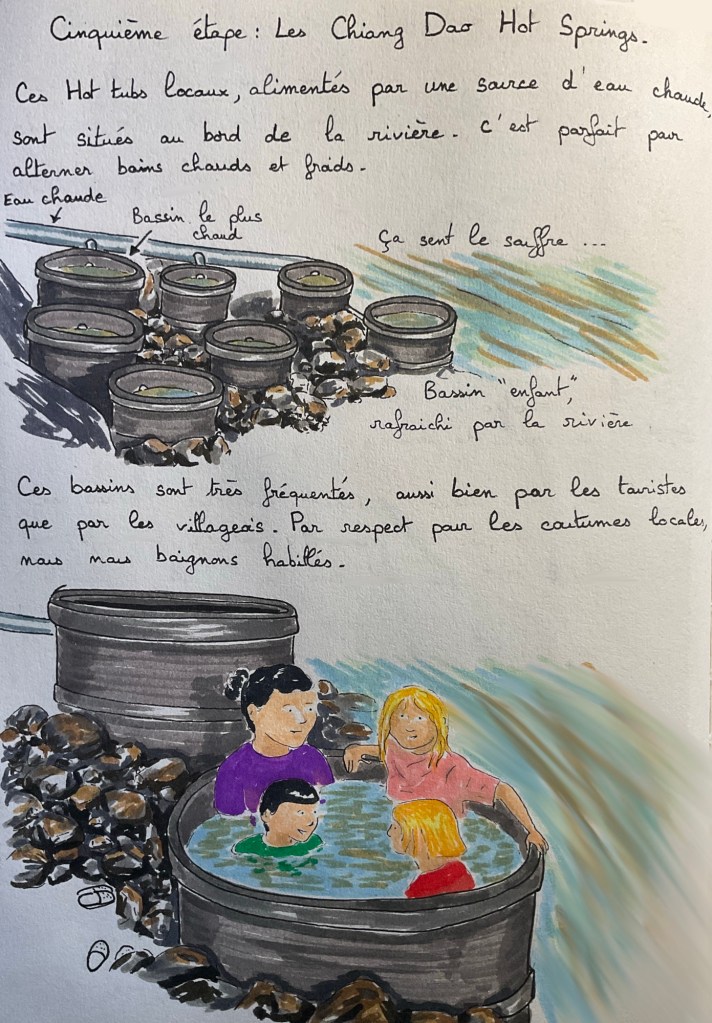 Cinquième étape : Les Chiang Dao Hot Springs.
Ces Hot tubs locaux, alimentés par une source d'eau chaude,
sont situés au bord de la rivière. C'est parfait pour
alterner bains chauds et froids.
Eau chaude
Bassin le plus
chaud
Ça sent le souffre ...
Bassin "enfant",
rafraichi par la rivière
Ces bassins sont très fréquentés, aussi bien par les touristes
que par les villageois. Par respect pour les coutumes locales,
nous nous baignons habillés.